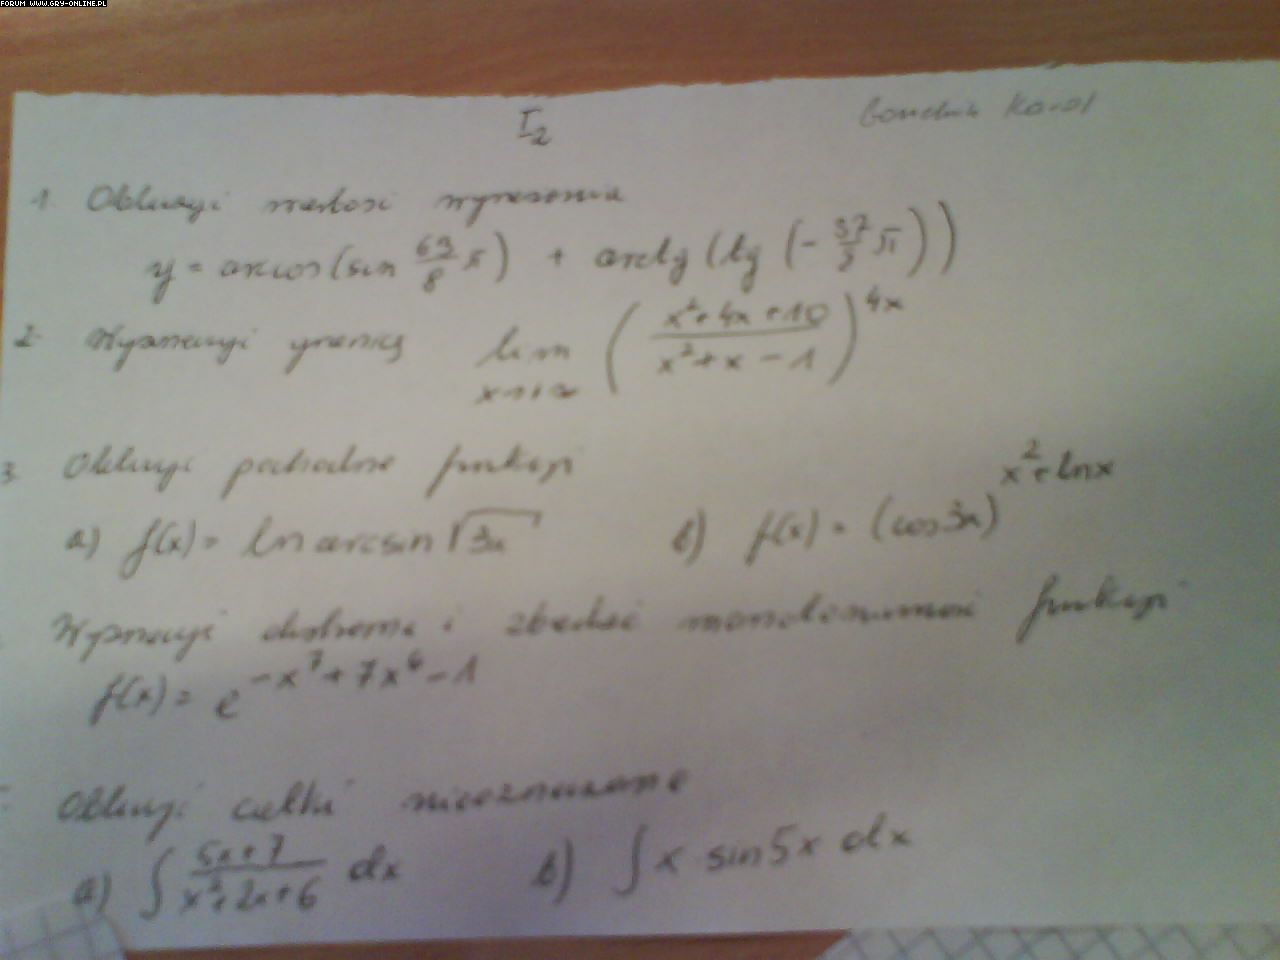 FORUM WWW.GRY-ONLINE.PL
I₂
Karol
1. Obliczyć wartość wyrażenia
y = arccos(sin 69/8 π) + arctg(tg(-37/3 π))
2. Wyznaczyć granicę lim x→+∞ ((x²+4x+10)/(x²+x-1))^4x
3. Obliczyć pochodne funkcji
a) f(x) = ln arcsin √3x b) f(x) = (cos3x)^(x²+lnx)
Wyznaczyć ekstrema i zbadać monotoniczność funkcji
f(x) = e^(-x⁷+7x⁶-1)
Obliczyć całki nieoznaczone
a) ∫ (5x+7)/(x²+2x+6) dx b) ∫ x sin5x dx